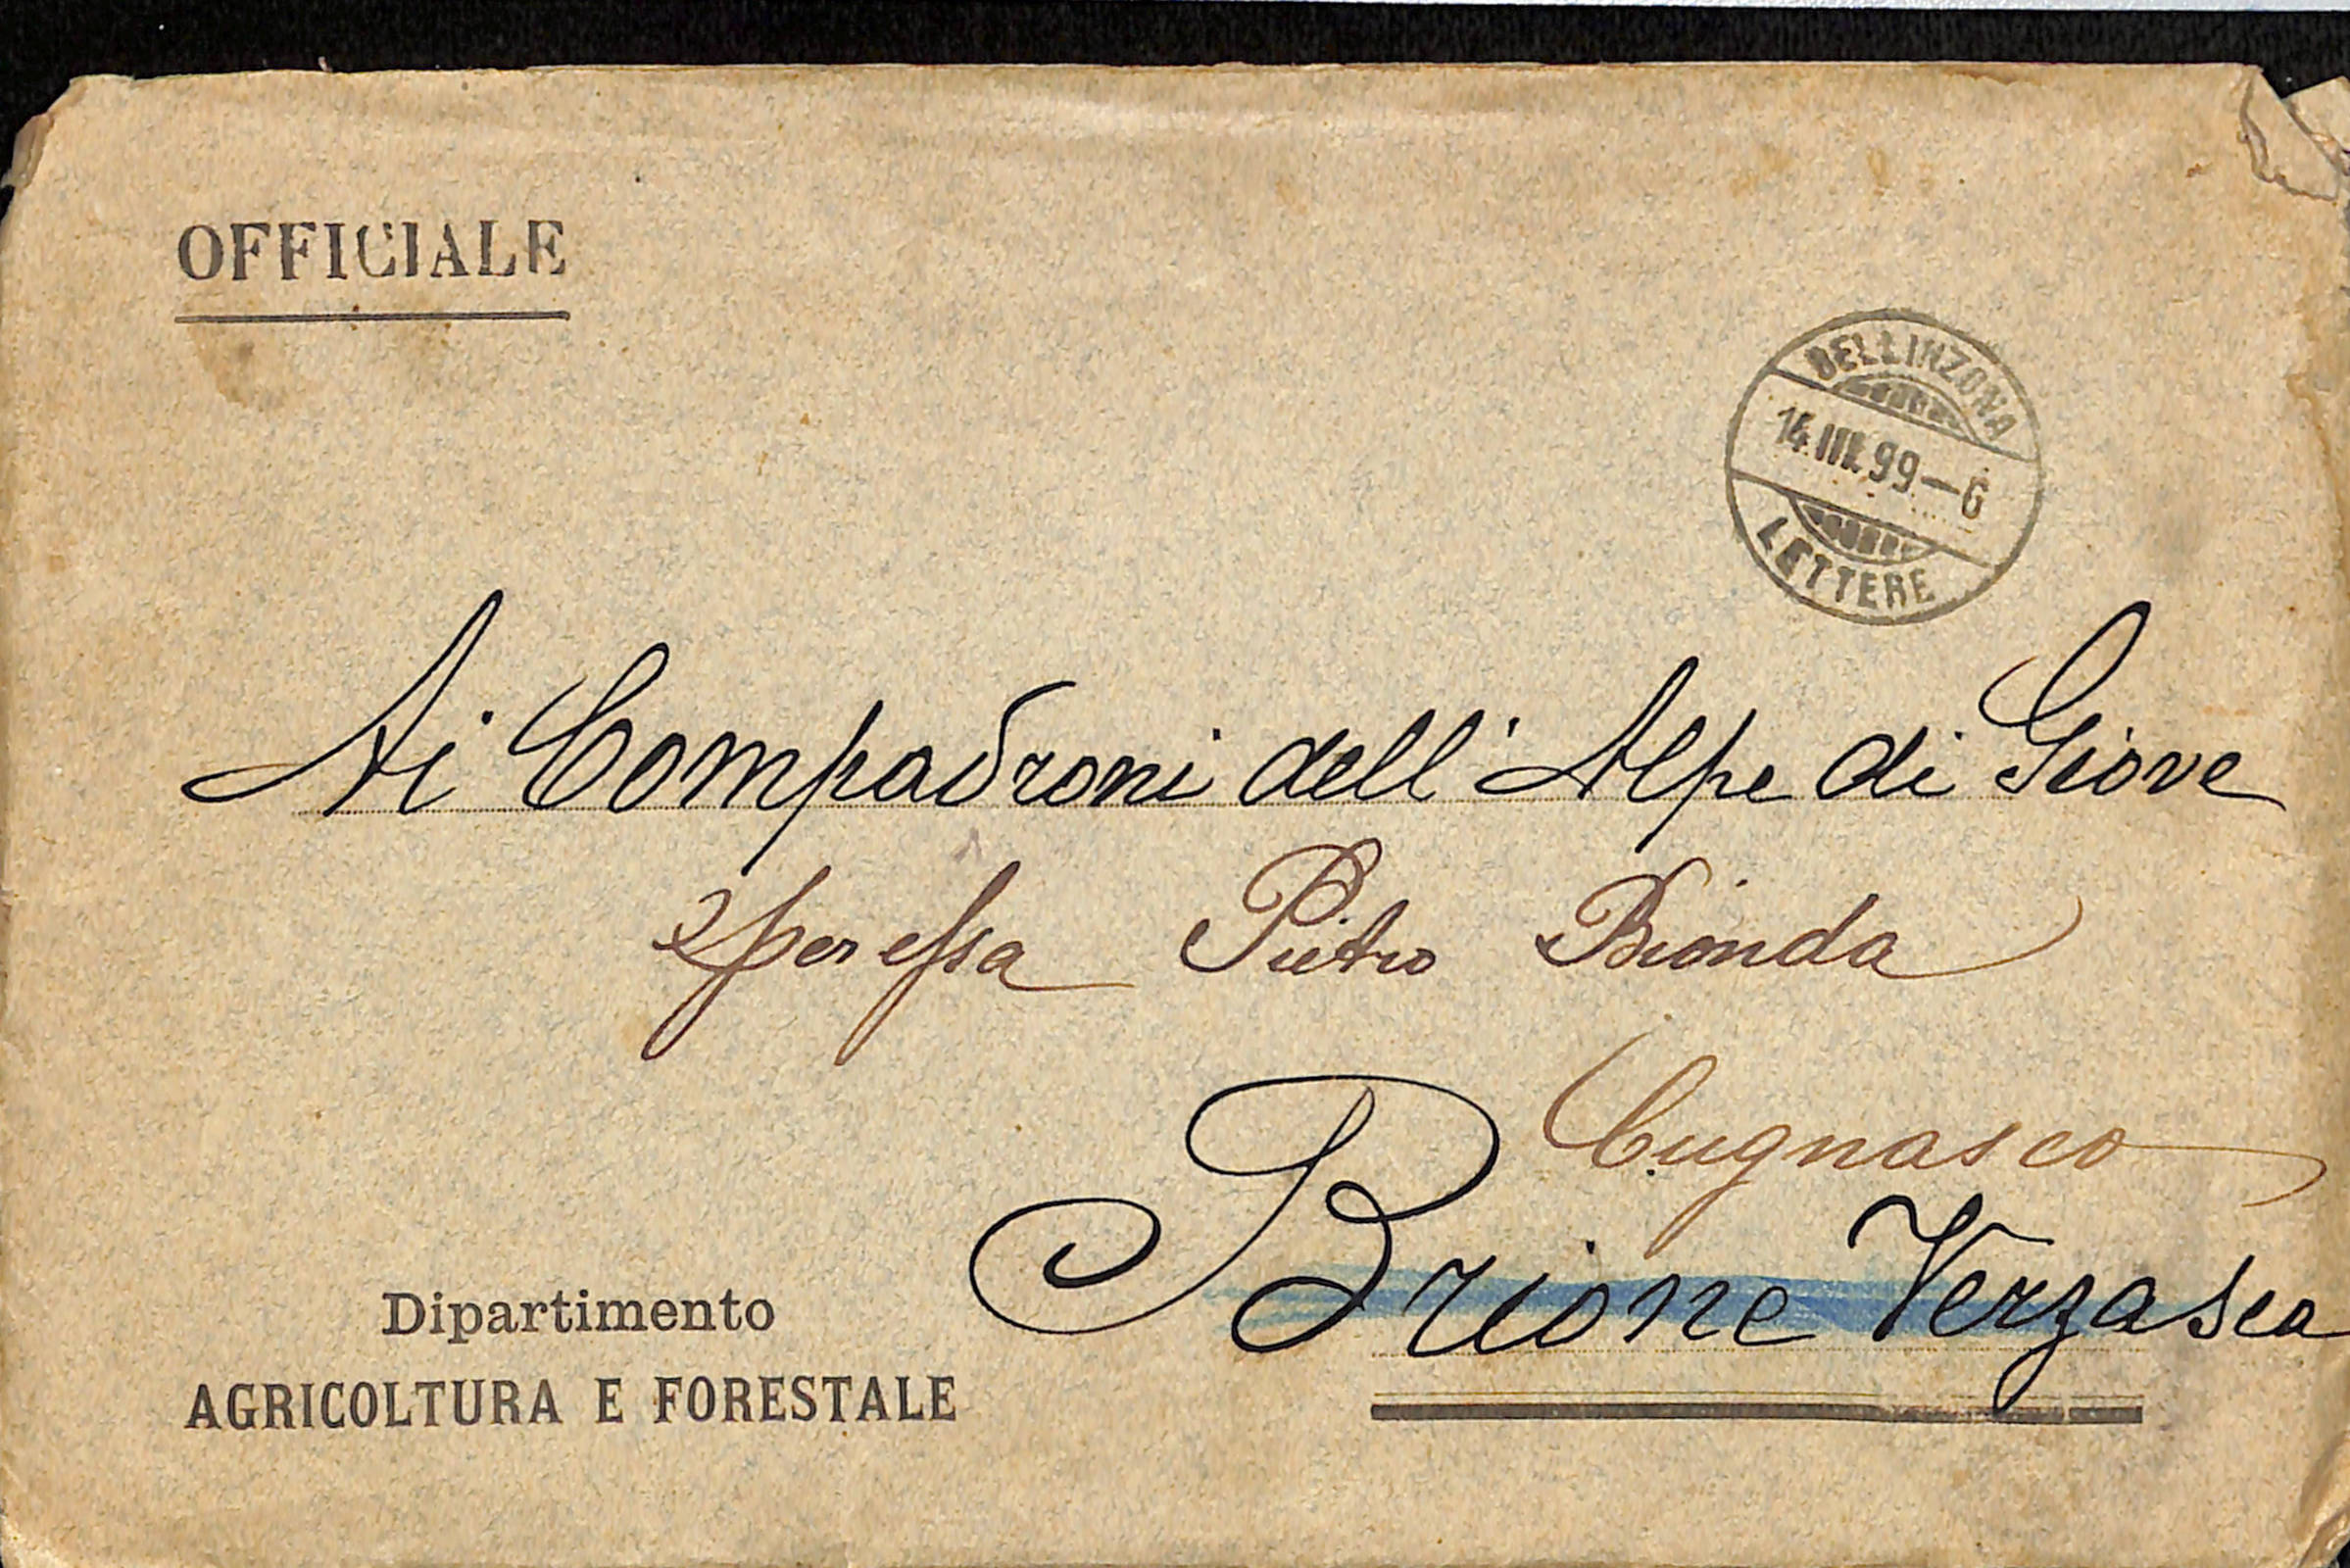 OFFICIALE
BELLINZONA
14.III.99—6
LETTERE
Ai Compadroni dell'Alpe di Giove
per essa Pietro Bionda
Cugnasco
Brione Verzasca
Dipartimento
AGRICOLTURA E FORESTALE